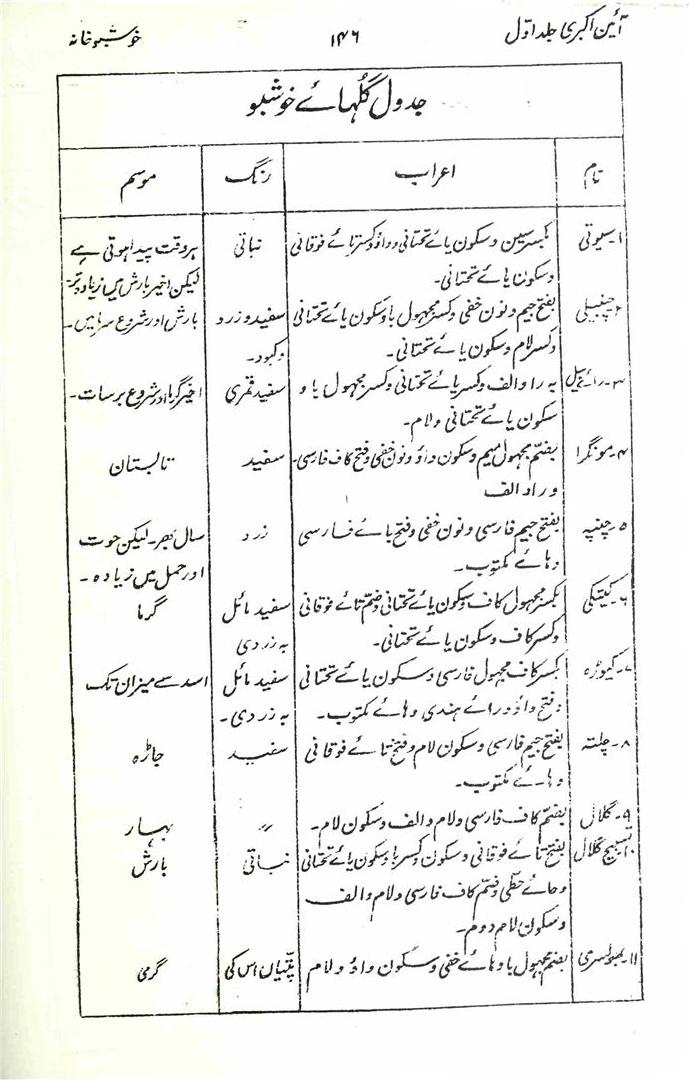 آئین اکبری جلد اول ۱۴۶ خوشبو خانہ
جدول گلہائے خوشبو
نام اعراب رنگ موسم
۱۔ سیوتی بکسر سین و سکون یائے تحتانی و واؤ و کسر تائے فوقانی نباتی ہر وقت پیدا ہوتی ہے
و سکون یائے تحتانی۔ لیکن اخیر بارش میں زیادہ تر
۲۔ چنبیلی بفتح جیم و نون خفی و کسر مجہول با و سکون یائے تحتانی سفید و زرد بارش اور شروع سرما میں۔
و کسر لام و سکون یائے تحتانی۔ و کبود۔
۳۔ رائے بیل بہ را و الف و کسر یائے تحتانی و کسر مجہول با و سفید قمری اخیر گرما اور شروع برسات۔
سکون یائے تحتانی و لام۔
۴۔ مونگرا بضم مجہول میم و سکون واؤ و نون خفی و فتح کاف فارسی۔ سفید تابستان
و را و الف
۵۔ چنپہ بفتح جیم فارسی و نون خفی و فتح بائے فارسی زرد سال بھر۔ لیکن حوت
و ہائے مکتوب۔ اور حمل میں زیادہ۔
۶۔ کیتکی بکسر مجہول کاف و سکون یائے تحتانی و ضم تائے فوقانی سفید مائل گرما
و کسر کاف و سکون یائے تحتانی۔ بہ زردی
۷۔ کیوڑہ بکسر کاف مجہول فارسی و سکون یائے تحتانی سفید مائل اسد سے میزان تک
و فتح واؤ و رائے ہندی و ہائے مکتوب۔ بہ زردی۔
۸۔ چلتہ بفتح جیم فارسی و سکون لام و فتح تائے فوقانی سفید جاڑہ
و ہائے مکتوب۔
۹۔ گلال بضم کاف فارسی و لام و الف و سکون لام۔ ״ بہار
۱۰۔ تسبیح گلال بفتح تائے فوقانی و سکون و کسر با و سکون یائے تحتانی نباتی بارش
و حائے حطی و ضم کاف فارسی و لام و الف
و سکون لام دوم۔
۱۱۔ بھولسری بضم مجہول با و ہائے خفی و سکون واؤ و لام پتیاں اس کی گرمی